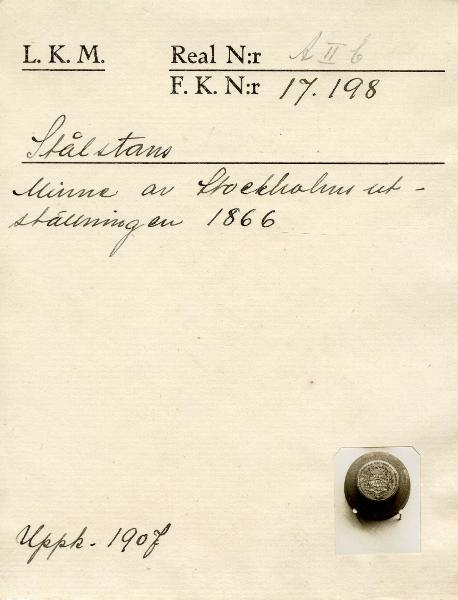 L. K. M.
Real N:r A II b
F. K. N:r 17.198
Stålstans
Minne av Stockholmsut-
ställningen 1866
Uppk. 1907